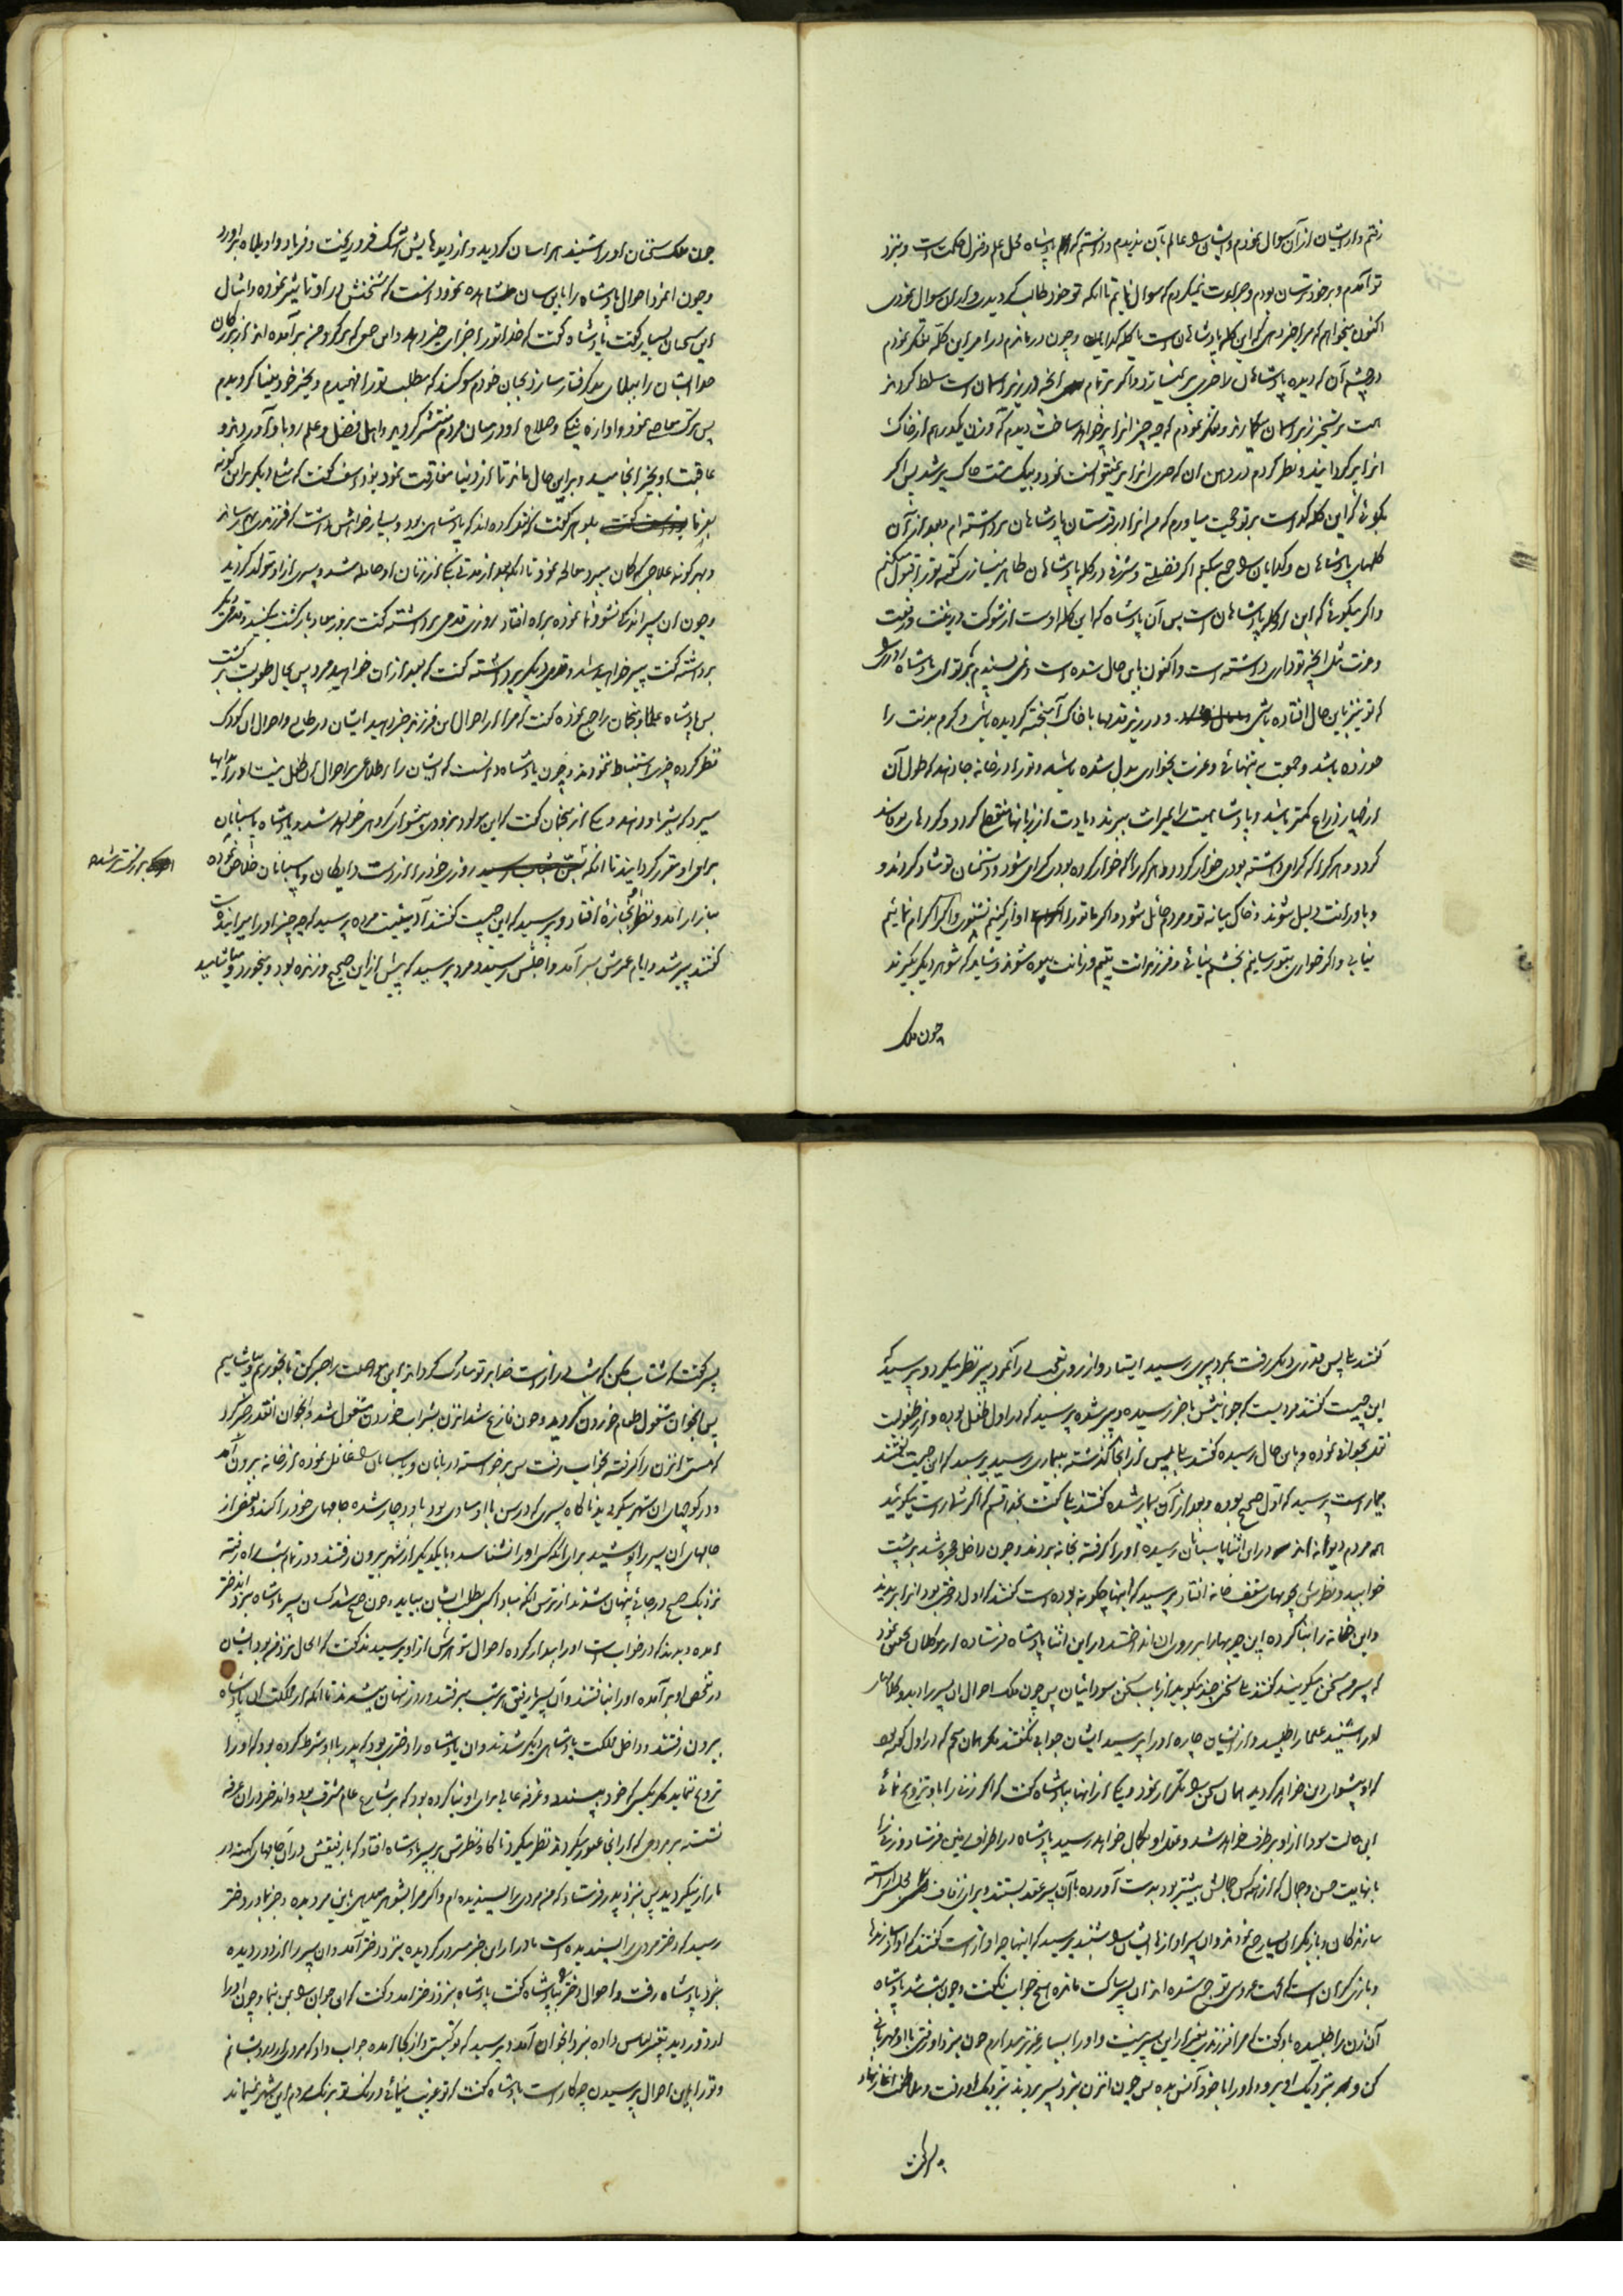 رفتم و از ایشان از آن سوال نمودم و ایشان را عالم بآن ندیدم و دانستم که پادشاه محل علم و منزل حکمت است و بنزد
تو آمدم و بر خود ترسان بودم و جرأت نمیکردم که سوال نمایم تا آنکه تو خود طالب گردیدی و از من سوال نمودی
اکنون میخواهم که مرا خبر دهی که این کله پادشاهان است یا کله گدایان و چون درماندم در امر این کله تفکر نمودم
در چشم آن که دیده پادشاهان را چیزی پر نمیسازد و اگر بر تمام آنچه در زیر آسمان است مسلط گردند
همت بر تسخیر زبر آسمان میگمارند و تفکر نمودم که چه چیز آنرا پر خواهد ساخت دیدم که وزن یکدرهم از خاک
آنرا پر گردانید و نظر کردم در دهن آن که چیزی آنرا پر نمیتوانست نمود و بیک مشت خاک پر شد پس اگر
بگوئی که این کله گداست بر تو حجت میاورم که من آنرا از قبرستان پادشاهان برداشته ام و بعد از آن
کلهای پادشاهان و گدایان را جمع میکنم اگر فضیلتی و شرفی در کله پادشاهان ظاهر میسازی گفته تو را قبول میکنم
و اگر میگوئی که این از کله پادشاهان است پس آن پادشاه که این کله اوست از شوکت و زینت و رفعت
و عزت مثل آنچه تو داری داشته است و اکنون باین حال شده است و نمی پسندم بر تو ای پادشاه روزی را
که تو نیز باین حال افتاده باشی و در زیر قدمها با خاک آمیخته گردیده باشی و کرم بدنت را
خورده باشد و جمعیت به تنهائی و عزت بخواری بدل شده باشد و تو را در خانه جا دهند که طول آن
از چهار ذراع کمتر باشد و پادشاهیت را بمیراث ببرند و یادت از زبانها منقطع گردد و کردهای تو فاسد
گردد و هر که را که گرامی داشته بودی خوار گردد و هر که را که خوار کرده بودی گرامی شود و دشمنان تو شاد گردند و
و یاورانت ذلیل شوند و خاک میانه تو و مردم حائل شود و اگر ما تو را آواز کنیم نشنوی و اگر اکرام نمائیم
نیابی و اگر خواری بتو رسانیم بخشم نیائی و فرزندانت یتیم و زنانت بیوه شوند و شاید که شوهر دیگر بگیرند
چون ملک
چون ملک سخنان او را شنید هراسان گردید و از دیدهایش اشک فرو ریخت و فریاد واویلاه برآورد
و چون آنمرد احوال پادشاه را باین سان مشاهده نمود دانست که سخنش در او تاثیر نموده و امثال
این سخنان بسیار گفت پادشاه گفت که خدا تو را جزای خیر دهد و این جمعی که بر گرد من برآمده اند از بزرگان
خدا ایشان را ببلای بد گرفتار سازد بجان خودم سوگند که مطلب تو را فهمیدم و بخیر خود بینا گردیدم
پس ترک معاصی نمود و آوازه نیکی و صلاح او در میان مردم منتشر گردید و اهل فضل و علم رو باو آوردند و
عاقبت او بخیر انجامید و بر این حال ماند تا از دنیا مفارقت نمود یوذاسف گفت که مثل دیگر بر این گونه
بفرما بلوهر گفت که نقل کرده اند که پادشاهی بود و بسیار خواهش داشت که فرزندی بهم رساند
و بهر گونه علاجی که گمان میبرد معالجه نمود تا آنکه بعد از مدتی یکی از زنان او حامله شد و پسری از او متولد گردید
و چون آن پسر اندکی نشو و نما نموده براه افتاد روزی قدمی برداشته گفت بروز معاد بازگشت میکنید و قدمی دیگر
برداشته گفت پیر خواهید شد و قدمی دیگر برداشته گفت که بعد از آن خواهید مرد پس بحال طفولیت برگشت
پس پادشاه علما و منجمان را جمع نموده گفت که مرا از احوال این فرزند خبر دهید ایشان در طالع و احوال آن کودک
نظر کرده چیزی استنباط ننمودند و چون پادشاه دانست که ایشان را اطلاعی بر احوال آن طفل نیست او را بدایها
سپرد که شیر باو دهند و یکی از منجمان گفت که این مولود بزودی پیشوای گروهی خواهد شد و پادشاه پاسبانان
بر او مقرر گردانید تا آنکه روزی خود را از دست دایگان و پاسبانان خلاص نموده
اندکی بزرگتر شد
ببازار آمد و نظرش بجنازه افتاد و پرسید که این چیست گفتند آدمیست مرده پرسید که چه چیز او را میرانده است
گفتند پیر شد و ایام عمرش بسر آمد و اجلش رسید و مرد پرسید که پیش از این صحیح و زنده بود و میخورد و میاشامید
گفتند بلی پس قدری دیگر رفت بمرد پیری رسید ایستاد و از روی تعجب در آنمرد پیر نظر میکرد و پرسید که
این چیست گفتند مردیست که جوانیش بآخر رسیده و پیر شده پرسید که در اول طفل بوده و از طفولیت
نقل بجوانی نموده و باین حال رسیده گفتند بلی پس از آنجا گذشته به بیماری رسید پرسید که این چیست گفتند
بیمار است پرسید که اول صحیح بوده و بعد از آن بیمار شده گفتند بلی گفت بخدا قسم که اگر شما راست میگوئید
همه مردم دیوانه اند در این اثنا پاسبانان رسیده او را گرفته بخانه بردند و چون داخل حجره شد بر پشت
خوابید و نظرش بچوبهای سقف خانه افتاد پرسید که اینها چگونه بوده است گفتند که اول درختی بود آنرا بریدند
و این خانه را بنا کرده این چوبها را بر روی آن انداختند در این اثنا پادشاه فرستاده از موکلان تحقیق نمود
که پسرم چه سخن میگوید گفتند سخنی چند میگوید از باب سخن سودائیان پس چون ملک احوال آن پسر را دید و کلامهای
او را شنید علما را طلبید و از ایشان چاره او را پرسید ایشان جوابی نگفتند مگر همان منجم که در اول گفته بود
که او پیشوای دین خواهد گردید همان سخن را تکرار نمود و یکی از آنها بپادشاه گفت که اگر زنی را باو تزویج نمائی
این حالت سودا از او بر طرف خواهد شد و عقل او بکمال خواهد رسید پادشاه در اطراف زمین فرستاد و زنی را
با نهایت حسن و جمال که از همه کس جمالش بیشتر بود بدست آورده با آن پسر عقد بستند و برای زفاف مجلس آراسته
سازندگان و بازیگران بسیار جمع نمودند و آن پسر آوازهای ایشان را شنید پرسید که اینها چه آواز است گفتند که آواز سازندها
و بازیگران است که بجهت عروسی تو جمع شده اند آن پسر ساکت مانده هیچ جواب نگفت و چون شب شد پادشاه
آن زن را طلبیده باو گفت که مرا فرزندی بغیر از این پسر نیست و او را بسیار عزیز میدارم چون بنزد او رفتی با او مهربانی
کن و بنزدیک او برو و او را با خود انس بده پس چون آنزن بنزد پسر بردند بنزدیک او رفت و ملاطفت آغاز نهاد
پسر گفت
پسر گفت که شتاب مکن که شب دراز است خدا بر تو مبارک گرداند این مواصلت را صبر کن تا بخوریم و بیاشامیم
پس آنجوان مشغول طعام خوردن گردید و چون فارغ شد آنزن بشراب خوردن مشغول شد و آنجوان آنقدر صبر کرد
که مستی آنزن را گرفته بخواب رفت پس برخواسته دربانان و پاسبانان را غافل نموده از خانه بیرون آمد
و در کوچهای آن شهر میگردید ناگاه پسری که در سن با او مساوی بود باو دچار شده جامهای خود را کنده بعضی از
جامهای آن پسر را پوشید برای آنکه کسی او را نشناسد و با یکدیگر از شهر بیرون رفتند و در تمام شب راه رفته
نزدیک صبح در جائی پنهان شدند از ترس آنکه مبادا کسی بطلب ایشان بیاید و چون صبح شد کسان پسر پادشاه بنزد آن دختر
آمده دیدند که در خواب است او را بیدار کرده احوال شوهرش از او پرسیدند گفت که الحال نزد من بود ایشان
در تفحص او برآمده او را نیافتند و آن پسر با رفیق هر شب میرفتند و روز پنهان میشدند تا آنکه از مملکت آن پادشاه
بیرون رفتند و داخل مملکت پادشاهی دیگر شدند و آن پادشاه را دختری بود که پدر با او شرط کرده بود که او را
تزویج ننماید مگر بکسی که خود پسندد و غرفه عالی برای او بنا کرده بود که بر شارع عام مشرف بود و آندختر در آن غرفه
نشسته بر مردمی که از آنجا عبور میکردند نظر میکرد تا گاه نظرش بر پسر پادشاه افتاد که با رفیقش در آن جامهای کهنه در
بازار میگردید پس بنزد پدر فرستاد که من مردی را پسندیده ام و اگر مرا بشوهر میدهی باین مرد بده و خبر بمادر دختر
رسید که دختر مردی را پسندیده است مادر از این خبر مسرور گردیده بنزد دختر آمد و آن پسر را از دور دیده
بنزد پادشاه رفت و احوال دختر را بپادشاه گفت پادشاه بنزد دختر آمد و گفت که آن جوان را بمن بنما و چون او را
از دور دید تغییر لباس داده بنزد آنجوان آمد و پرسید که تو کیستی و از کجا آمده جواب داد که مردی از درویشانم
و تو را باین احوال پرسیدن چه کار است پادشاه گفت که تو غریب مینمائی و رنگ تو برنگ مردم این شهر نمیماند